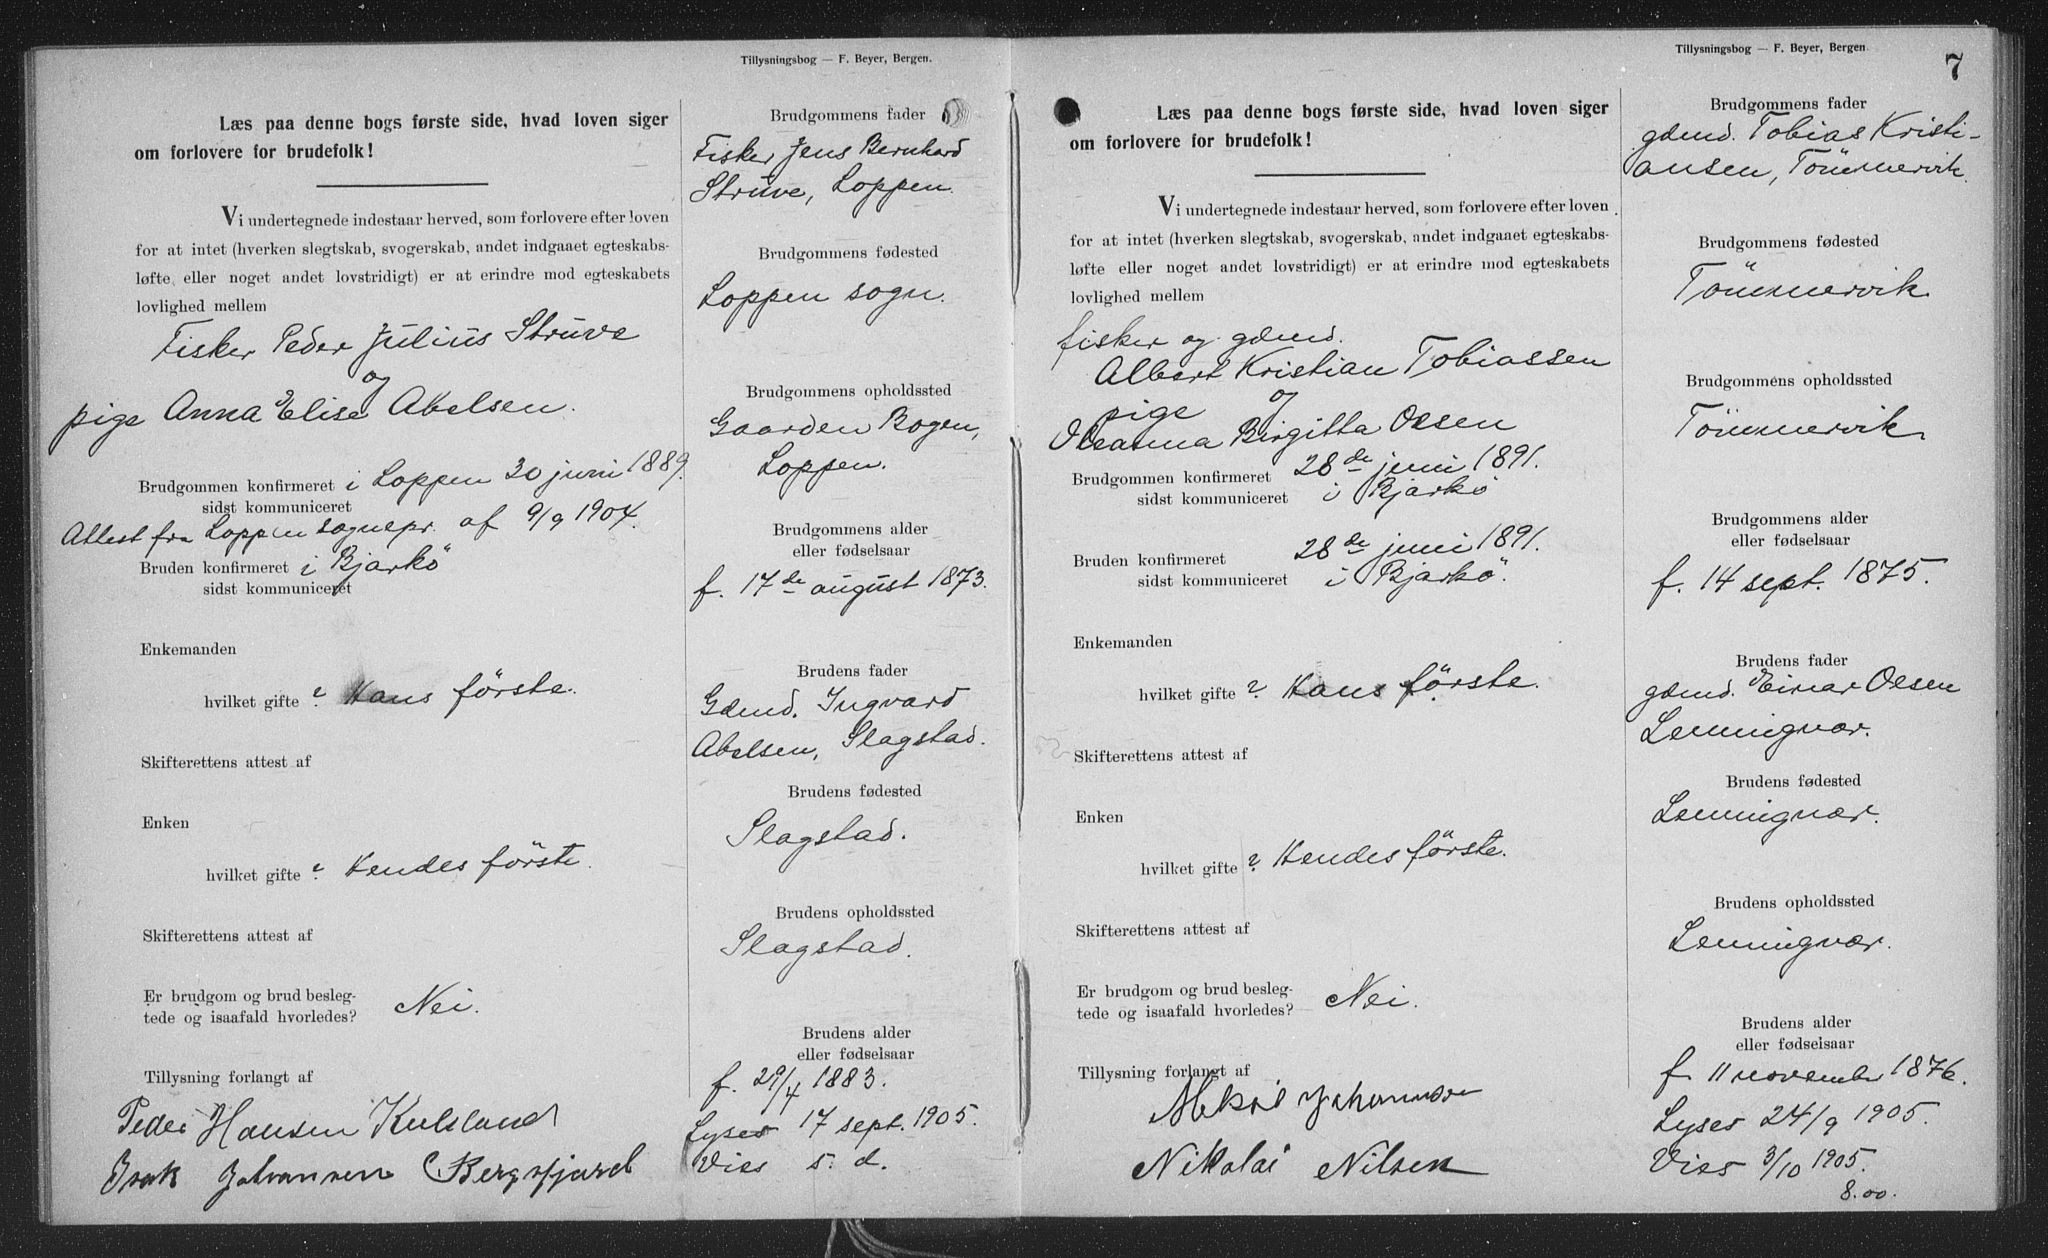 Tillysningsbog — F. Beyer, Bergen.
Læs paa denne bogs første side, hvad loven siger
om forlovere for brudefolk!
Vi undertegnede indestaar herved, som forlovere efter loven
for at intet (hverken slegtskab, svogerskab, andet indgaaet egteskabs-
løfte, eller noget andet lovstridigt) er at erindre mod egteskabets
lovlighed mellem
Fisker Peder Julius Struve
og
pige Anna Elise Abelsen.
Brudgommen konfirmeret i Loppen 30 juni 1889.
sidst kommuniceret
Attest fra Loppen sognepr. af 9/9 1904.
Bruden konfirmeret i Bjarkö
sidst kommuniceret
Enkemanden
hvilket gifte? Hans förste.
Skifterettens attest af
Enken
hvilket gifte? Hendes förste.
Skifterettens attest af
Er brudgom og brud besleg-
tede og isaafald hvorledes? Nei.
Tillysning forlangt af
Peder Hansen
Isak Johannsen Bergsfjord
Brudgommens fader
Fisker Jens Bernhard
Struve, Loppen.
Brudgommens fødested
Loppen sogn.
Brudgommens opholdssted
Gaarden Bogen,
Loppen.
Brudgommens alder
eller fødselsaar
f. 17de august 1873.
Brudens fader
Gdmd. Ingvard
Abelsen, Slagstad.
Brudens fødested
Slagstad.
Brudens opholdssted
Slagstad.
Brudens alder
eller fødselsaar
f. 29/4 1883.
Lyses 17 sept. 1905.
Vies s. d.
Tillysningsbog — F. Beyer, Bergen
7
Læs paa denne bogs første side, hvad loven siger
om forlovere for brudefolk!
Vi undertegnede indestaar herved, som forlovere efter loven
for at intet (hverken slegtskab, svogerskab, andet indgaaet egteskabs-
løfte eller noget andet lovstridigt) er at erindre mod egteskabets
lovlighed mellem
fisker og gdmd.
Albert Kristian Tobiassen
pige og
Oleanna Birgitta Olsen
Brudgommen konfirmeret 28de juni 1891.
sidst kommuniceret i Bjarkö
Bruden konfirmeret 28de juni 1891.
sidst kommuniceret i Bjarkö.
Enkemanden
hvilket gifte? Hans förste.
Skifterettens attest af
Enken
hvilket gifte? Hendes förste.
Skifterettens attest af
Er brudgom og brud besleg-
tede og isaafald hvorledes? Nei.
Tillysning forlangt af
Johannesen
Nikolai Nilsen
Brudgommens fader
gdmd. Tobias Kristi-
ansen, Tömmervik.
Brudgommens fødested
Tömmervik
Brudgommens opholdssted
Tömmervik
Brudgommens alder
eller fødselsaar
f. 14 sept. 1875.
Brudens fader
gdmd. Einar Olsen
Lemmingvær.
Brudens fødested
Lemmingvær.
Brudens opholdssted
Lemmingvær.
Brudens alder
eller fødselsaar
f. 11 november 1876.
Lyses 24/9 1905.
Vies 3/10 1905.
8.00.